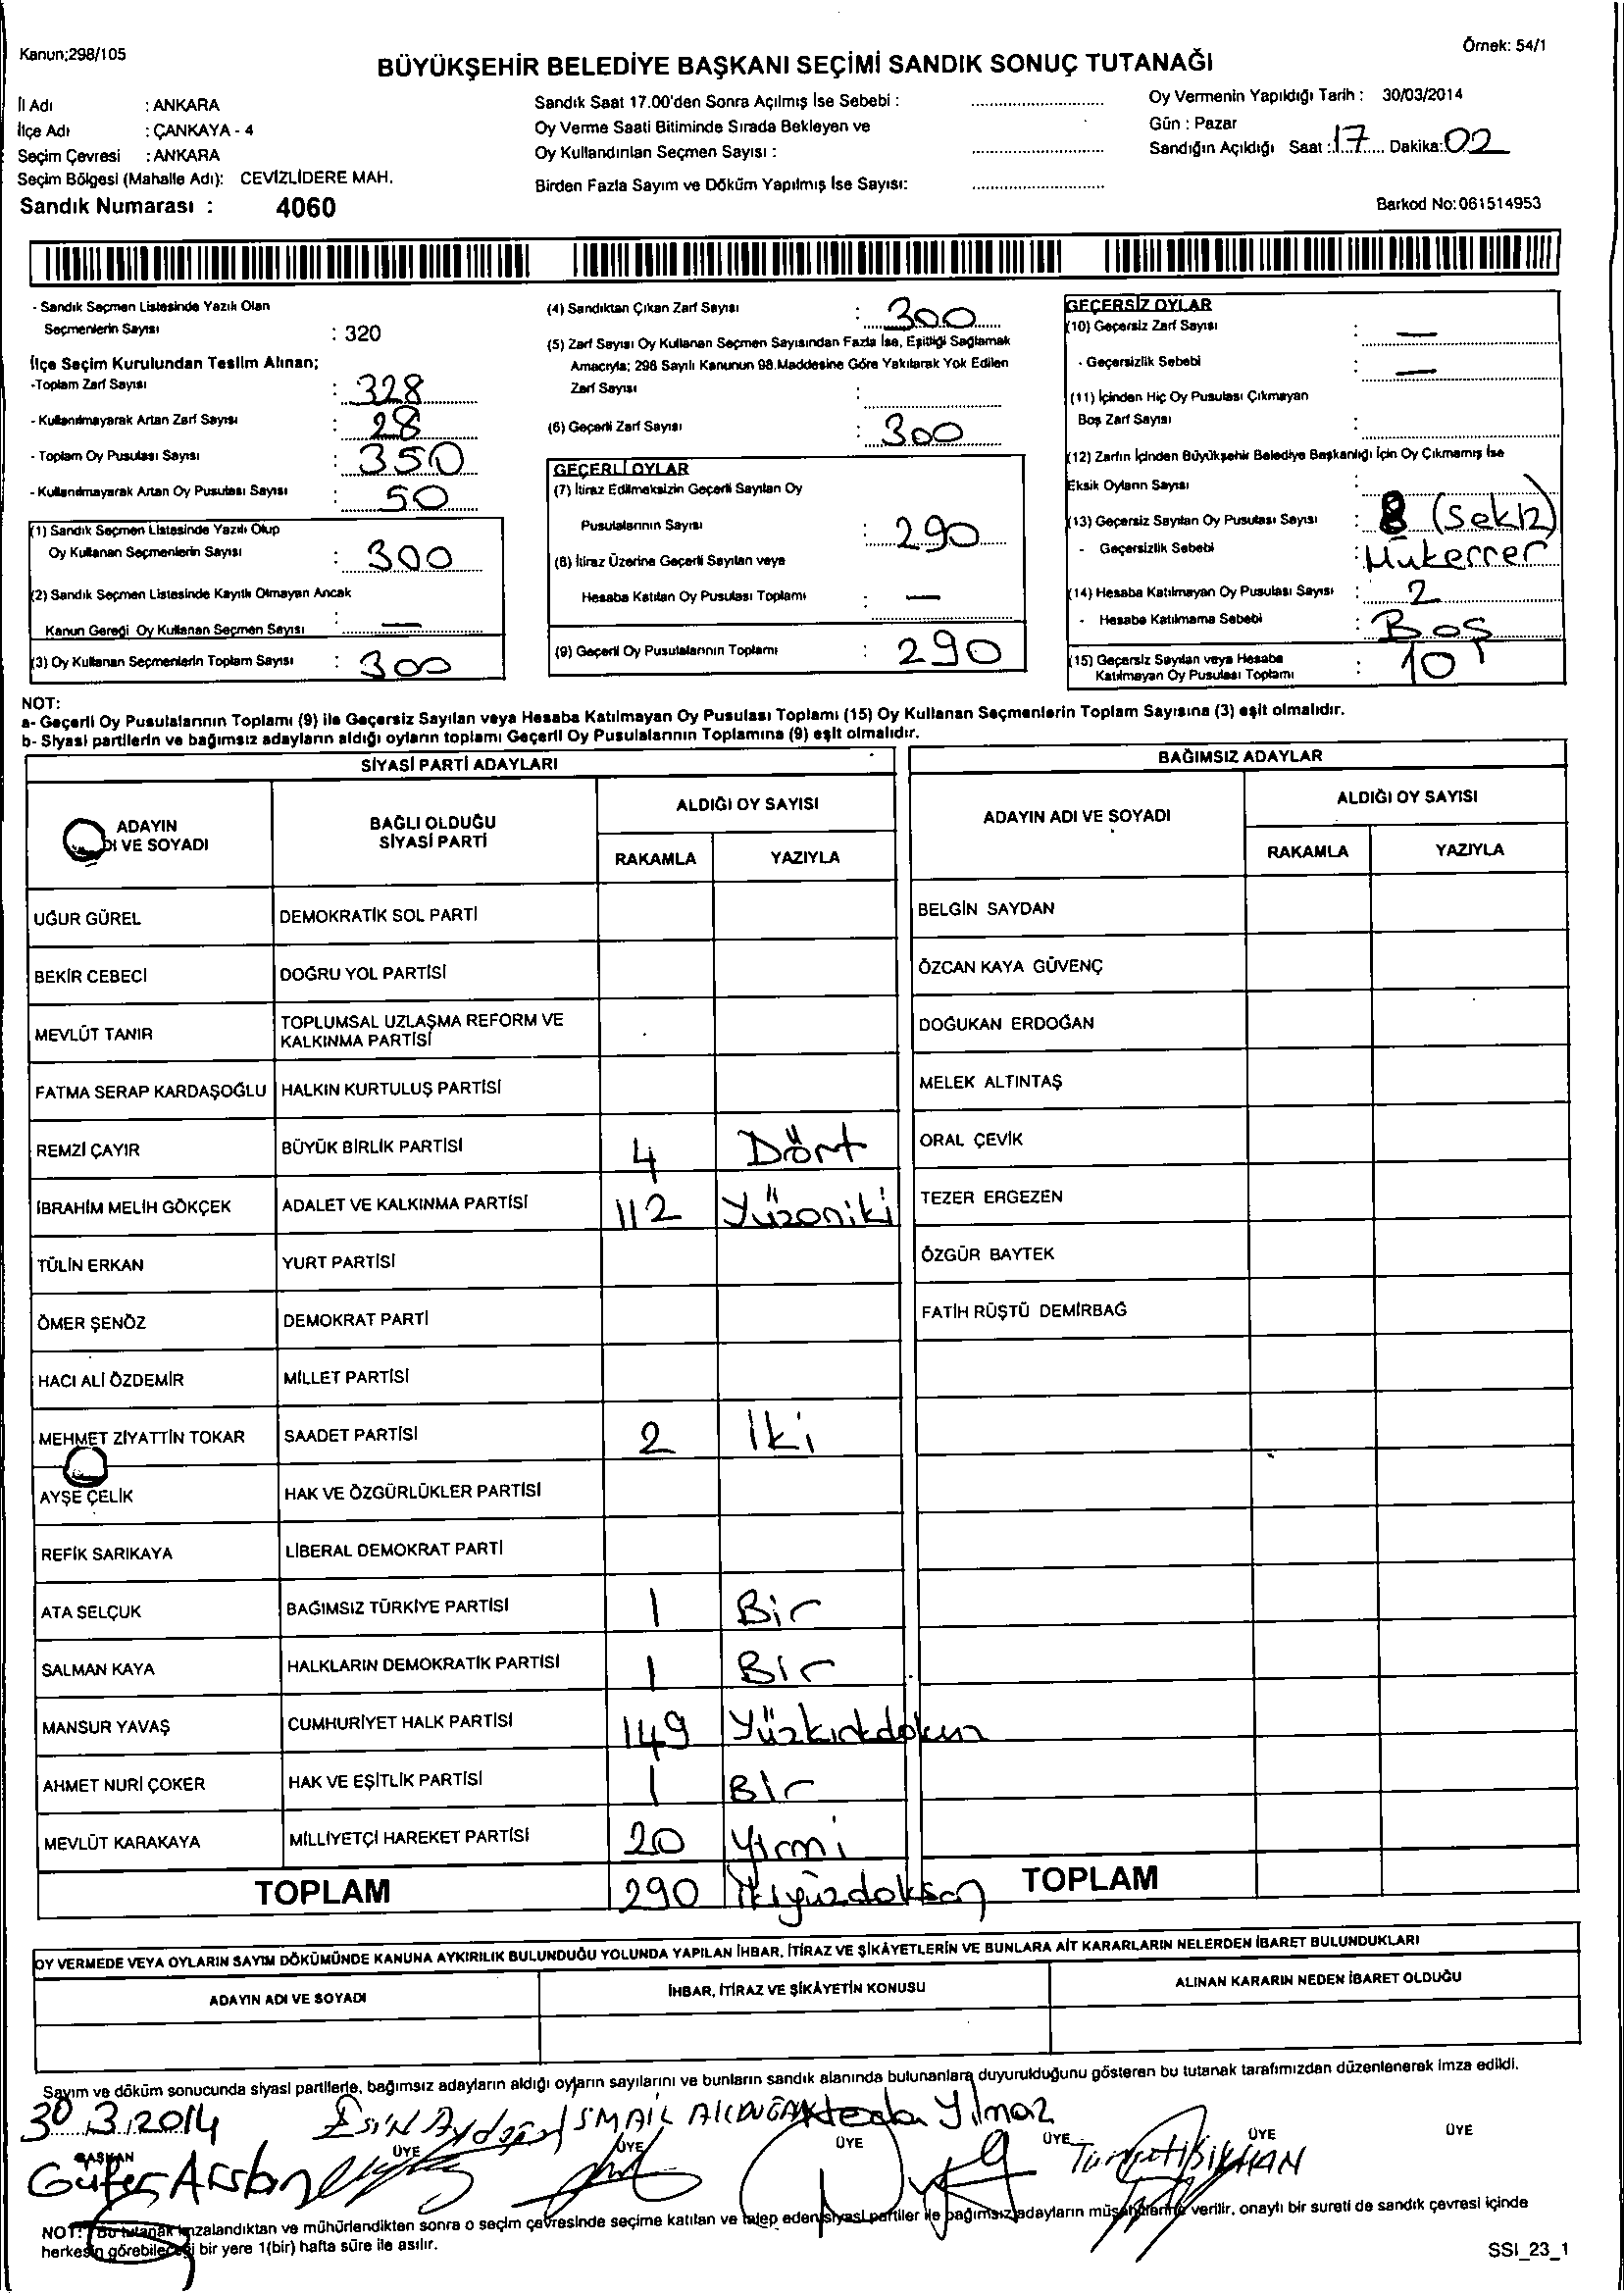 Kanun;298/105
Örnek: 54/1
BÜYÜKŞEHİR BELEDİYE BAŞKANI SEÇİMİ SANDIK SONUÇ TUTANAĞI
İl Adı : ANKARA
İlçe Adı : ÇANKAYA - 4
Seçim Çevresi : ANKARA
Seçim Bölgesi (Mahalle Adı): CEVİZLİDERE MAH.
Sandık Numarası : 4060
Sandık Saat 17.00'den Sonra Açılmış İse Sebebi :
Oy Verme Saati Bitiminde Sırada Bekleyen ve
Oy Kullandırılan Seçmen Sayısı :
Birden Fazla Sayım ve Döküm Yapılmış İse Sayısı:
Oy Vermenin Yapıldığı Tarih : 30/03/2014
Gün : Pazar
Sandığın Açıldığı Saat : 17 Dakika: 02
Barkod No:061514953
- Sandık Seçmen Listesinde Yazılı Olan
Seçmenlerin Sayısı : 320
İlçe Seçim Kurulundan Teslim Alınan;
-Toplam Zarf Sayısı : 328
- Kullanılmayarak Artan Zarf Sayısı : 28
- Toplam Oy Pusulası Sayısı : 350
- Kullanılmayarak Artan Oy Pusulası Sayısı : 50
(1) Sandık Seçmen Listesinde Yazılı Olup
Oy Kullanan Seçmenlerin Sayısı : 300
(2) Sandık Seçmen Listesinde Kayıtlı Olmayan Ancak
Kanun Gereği Oy Kullanan Seçmen Sayısı : —
(3) Oy Kullanan Seçmenlerin Toplam Sayısı : 300
(4) Sandıktan Çıkan Zarf Sayısı : 300
(5) Zarf Sayısı Oy Kullanan Seçmen Sayısından Fazla İse, Eşitliği Sağlamak
Amacıyla; 298 Sayılı Kanunun 98.Maddesine Göre Yakılarak Yok Edilen
Zarf Sayısı :
(6) Geçerli Zarf Sayısı : 300
GEÇERLİ OYLAR
(7) İtiraz Edilmeksizin Geçerli Sayılan Oy
Pusulalarının Sayısı : 290
(8) İtiraz Üzerine Geçerli Sayılan veya
Hesaba Katılan Oy Pusulası Toplamı : —
(9) Geçerli Oy Pusulalarının Toplamı : 290
GEÇERSİZ OYLAR
(10) Geçersiz Zarf Sayısı : —
- Geçersizlik Sebebi : —
(11) İçinden Hiç Oy Pusulası Çıkmayan
Boş Zarf Sayısı :
(12) Zarfın İçinden Büyükşehir Belediye Başkanlığı İçin Oy Çıkmamış İse
Eksik Oyların Sayısı :
(13) Geçersiz Sayılan Oy Pusulası Sayısı : 8 (Sekiz)
- Geçersizlik Sebebi : Mükerrer
(14) Hesaba Katılmayan Oy Pusulası Sayısı : 2
- Hesaba Katılmama Sebebi : Boş
(15) Geçersiz Sayılan veya Hesaba
Katılmayan Oy Pusulası Toplamı : 10
NOT:
a- Geçerli Oy Pusulalarının Toplamı (9) ile Geçersiz Sayılan veya Hesaba Katılmayan Oy Pusulası Toplamı (15) Oy Kullanan Seçmenlerin Toplam Sayısına (3) eşit olmalıdır.
b- Siyasi partilerin ve bağımsız adayların aldığı oyların toplamı Geçerli Oy Pusulalarının Toplamına (9) eşit olmalıdır.
SİYASİ PARTİ ADAYLARI
ADAYIN
DI VE SOYADI
BAĞLI OLDUĞU
SİYASİ PARTİ
ALDIĞI OY SAYISI
RAKAMLA YAZIYLA
UĞUR GÜREL DEMOKRATİK SOL PARTİ
BEKİR CEBECİ DOĞRU YOL PARTİSİ
MEVLÜT TANIR TOPLUMSAL UZLAŞMA REFORM VE
KALKINMA PARTİSİ
FATMA SERAP KARDAŞOĞLU HALKIN KURTULUŞ PARTİSİ
REMZİ ÇAYIR BÜYÜK BİRLİK PARTİSİ 4 Dört
İBRAHİM MELİH GÖKÇEK ADALET VE KALKINMA PARTİSİ 112 Yüzoniki
TÜLİN ERKAN YURT PARTİSİ
ÖMER ŞENÖZ DEMOKRAT PARTİ
HACI ALİ ÖZDEMİR MİLLET PARTİSİ
MEHMET ZİYATTİN TOKAR SAADET PARTİSİ 2 İki
AYŞE ÇELİK HAK VE ÖZGÜRLÜKLER PARTİSİ
REFİK SARIKAYA LİBERAL DEMOKRAT PARTİ
ATA SELÇUK BAĞIMSIZ TÜRKİYE PARTİSİ 1 Bir
SALMAN KAYA HALKLARIN DEMOKRATİK PARTİSİ 1 Bir
MANSUR YAVAŞ CUMHURİYET HALK PARTİSİ 149 Yüzkırkdokuz
AHMET NURİ ÇOKER HAK VE EŞİTLİK PARTİSİ 1 Bir
MEVLÜT KARAKAYA MİLLİYETÇİ HAREKET PARTİSİ 20 Yirmi
TOPLAM 290 İkiyüzdoksan
BAĞIMSIZ ADAYLAR
ADAYIN ADI VE SOYADI
ALDIĞI OY SAYISI
RAKAMLA YAZIYLA
BELGİN SAYDAN
ÖZCAN KAYA GÜVENÇ
DOĞUKAN ERDOĞAN
MELEK ALTINTAŞ
ORAL ÇEVİK
TEZER ERGEZEN
ÖZGÜR BAYTEK
FATİH RÜŞTÜ DEMİRBAĞ
TOPLAM
OY VERMEDE VEYA OYLARIN SAYIM DÖKÜMÜNDE KANUNA AYKIRILIK BULUNDUĞU YOLUNDA YAPILAN İHBAR, İTİRAZ VE ŞİKÂYETLERİN VE BUNLARA AİT KARARLARIN NELERDEN İBARET BULUNDUKLARI
ADAYIN ADI VE SOYADI İHBAR, İTİRAZ VE ŞİKÂYETİN KONUSU ALINAN KARARIN NEDEN İBARET OLDUĞU
Sayım ve döküm sonucunda siyasi partilerle, bağımsız adayların aldığı oyların sayılarını ve bunların sandık alanında bulunanlara duyurulduğunu gösteren bu tutanak tarafımızdan düzenlenerek imza edildi.
30.3.2014 Esin İSMAİL Yılmaz
BAŞKAN ÜYE ÜYE ÜYE ÜYE ÜYE ÜYE
NOT: Bu tutanak imzalandıktan ve mühürlendikten sonra o seçim çevresinde seçime katılan ve talep eden siyasi partiler ile bağımsız adayların müşahitlerine verilir, onaylı bir sureti de sandık çevresi içinde
herkesin görebileceği bir yere 1(bir) hafta süre ile asılır.
SSI_23_1